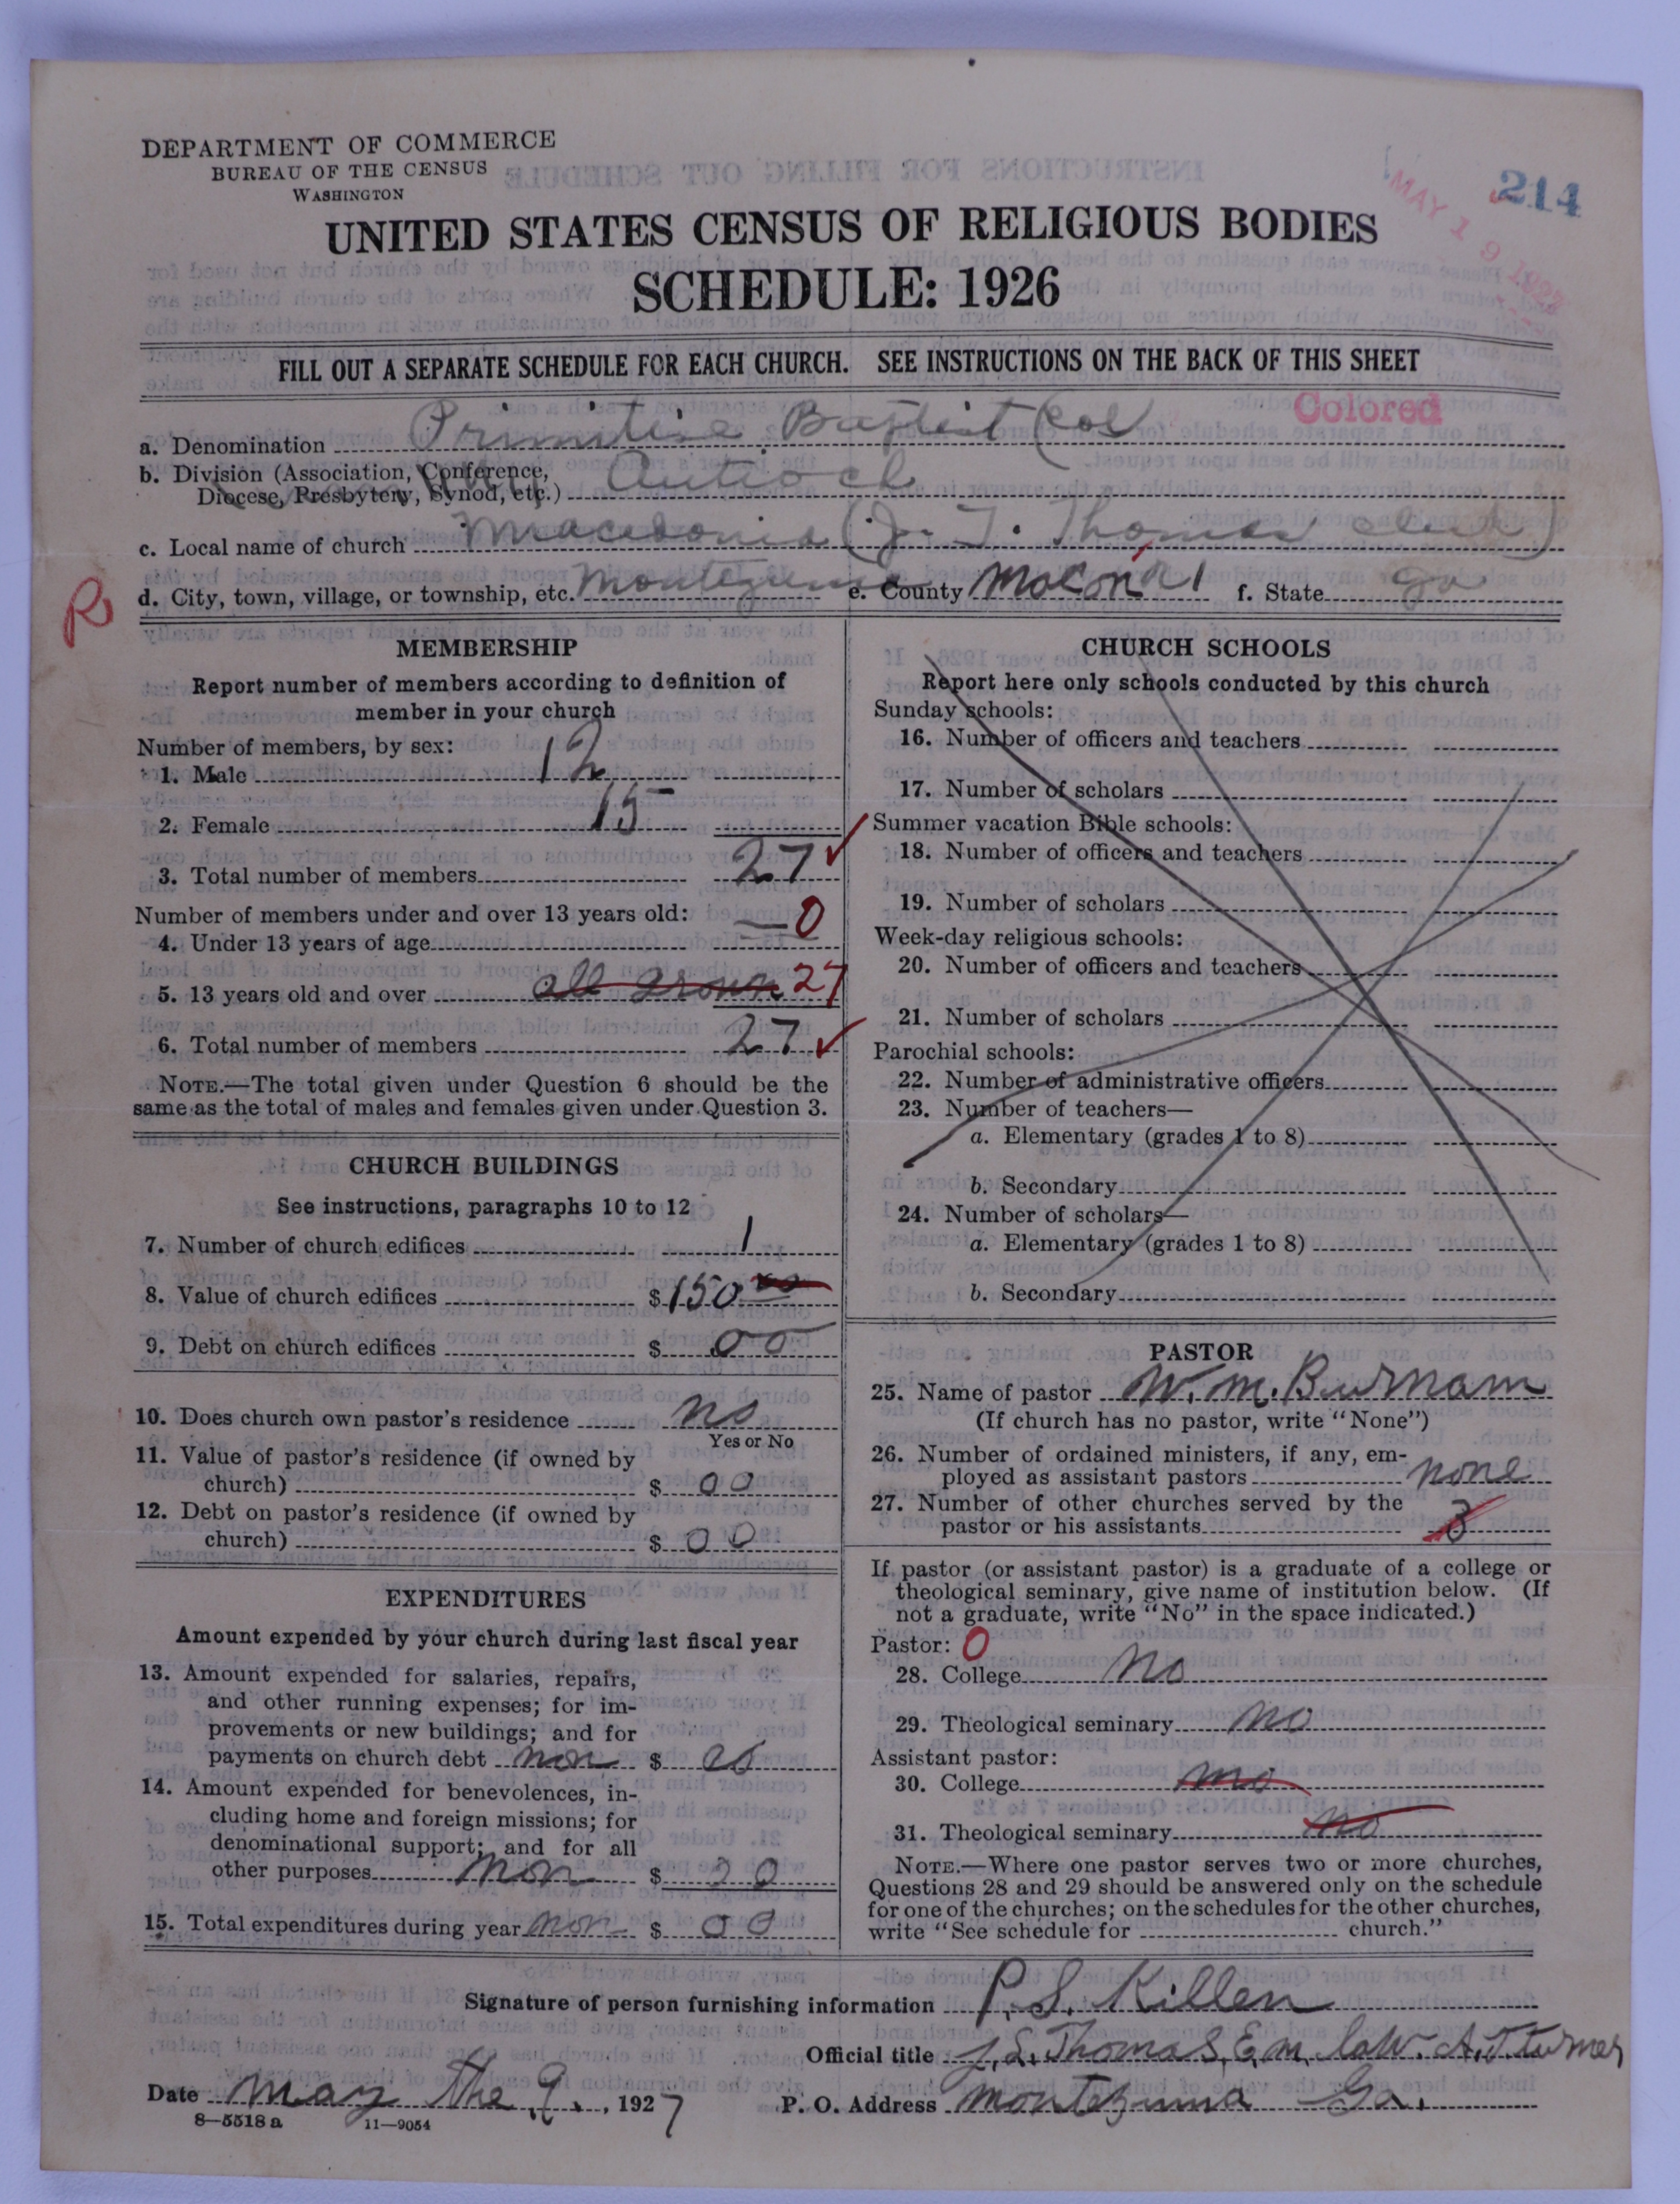 DEPARTMENT OF COMMERCE
BUREAU OF THE CENSUS
WASHINGTON
214
MAY 19 1927
UNITED STATES CENSUS OF RELIGIOUS BODIES
SCHEDULE: 1926
FILL OUT A SEPARATE SCHEDULE FOR EACH CHURCH. SEE INSTRUCTIONS ON THE BACK OF THIS SHEET
Colored
a. Denomination Primitive Baptist (Col
b. Division (Association, Conference,
Diocese, Presbytery, Synod, etc.) Antioch
c. Local name of church Macedonia (J. T. Thomas clerk)
R
d. City, town, village, or township, etc. Montezuma e. County Macon f. State Ga
MEMBERSHIP
Report number of members according to definition of
member in your church
Number of members, by sex:
1. Male 12
2. Female 15
3. Total number of members 27
Number of members under and over 13 years old:
4. Under 13 years of age — 0
5. 13 years old and over all grown 27
6. Total number of members 27
NOTE.—The total given under Question 6 should be the
same as the total of males and females given under Question 3.
CHURCH BUILDINGS
See instructions, paragraphs 10 to 12
7. Number of church edifices 1
8. Value of church edifices $150 00
9. Debt on church edifices $ 00
10. Does church own pastor's residence no
Yes or No
11. Value of pastor's residence (if owned by
church) $ 00
12. Debt on pastor's residence (if owned by
church) $ 00
EXPENDITURES
Amount expended by your church during last fiscal year
13. Amount expended for salaries, repairs,
and other running expenses; for im-
provements or new buildings; and for
payments on church debt non $ 00
14. Amount expended for benevolences, in-
cluding home and foreign missions; for
denominational support; and for all
other purposes non $ 00
15. Total expenditures during year non $ 00
CHURCH SCHOOLS
Report here only schools conducted by this church
Sunday schools:
16. Number of officers and teachers
17. Number of scholars
Summer vacation Bible schools:
18. Number of officers and teachers
19. Number of scholars
Week-day religious schools:
20. Number of officers and teachers
21. Number of scholars
Parochial schools:
22. Number of administrative officers
23. Number of teachers—
a. Elementary (grades 1 to 8)
b. Secondary
24. Number of scholars—
a. Elementary (grades 1 to 8)
b. Secondary
PASTOR
25. Name of pastor W. M. Burnam
(If church has no pastor, write "None")
26. Number of ordained ministers, if any, em-
ployed as assistant pastors none
27. Number of other churches served by the
pastor or his assistants 3
If pastor (or assistant pastor) is a graduate of a college or
theological seminary, give name of institution below. (If
not a graduate, write "No" in the space indicated.)
Pastor: 0
28. College No
29. Theological seminary no
Assistant pastor:
30. College no
31. Theological seminary no
NOTE.—Where one pastor serves two or more churches,
Questions 28 and 29 should be answered only on the schedule
for one of the churches; on the schedules for the other churches,
write "See schedule for church."
Signature of person furnishing information P. S. Killen
Official title J. L. Thomas, E. M. law. A. J. turner
Date may the 9., 1927 P. O. Address montezuma Ga.
8—5518a 11—9054